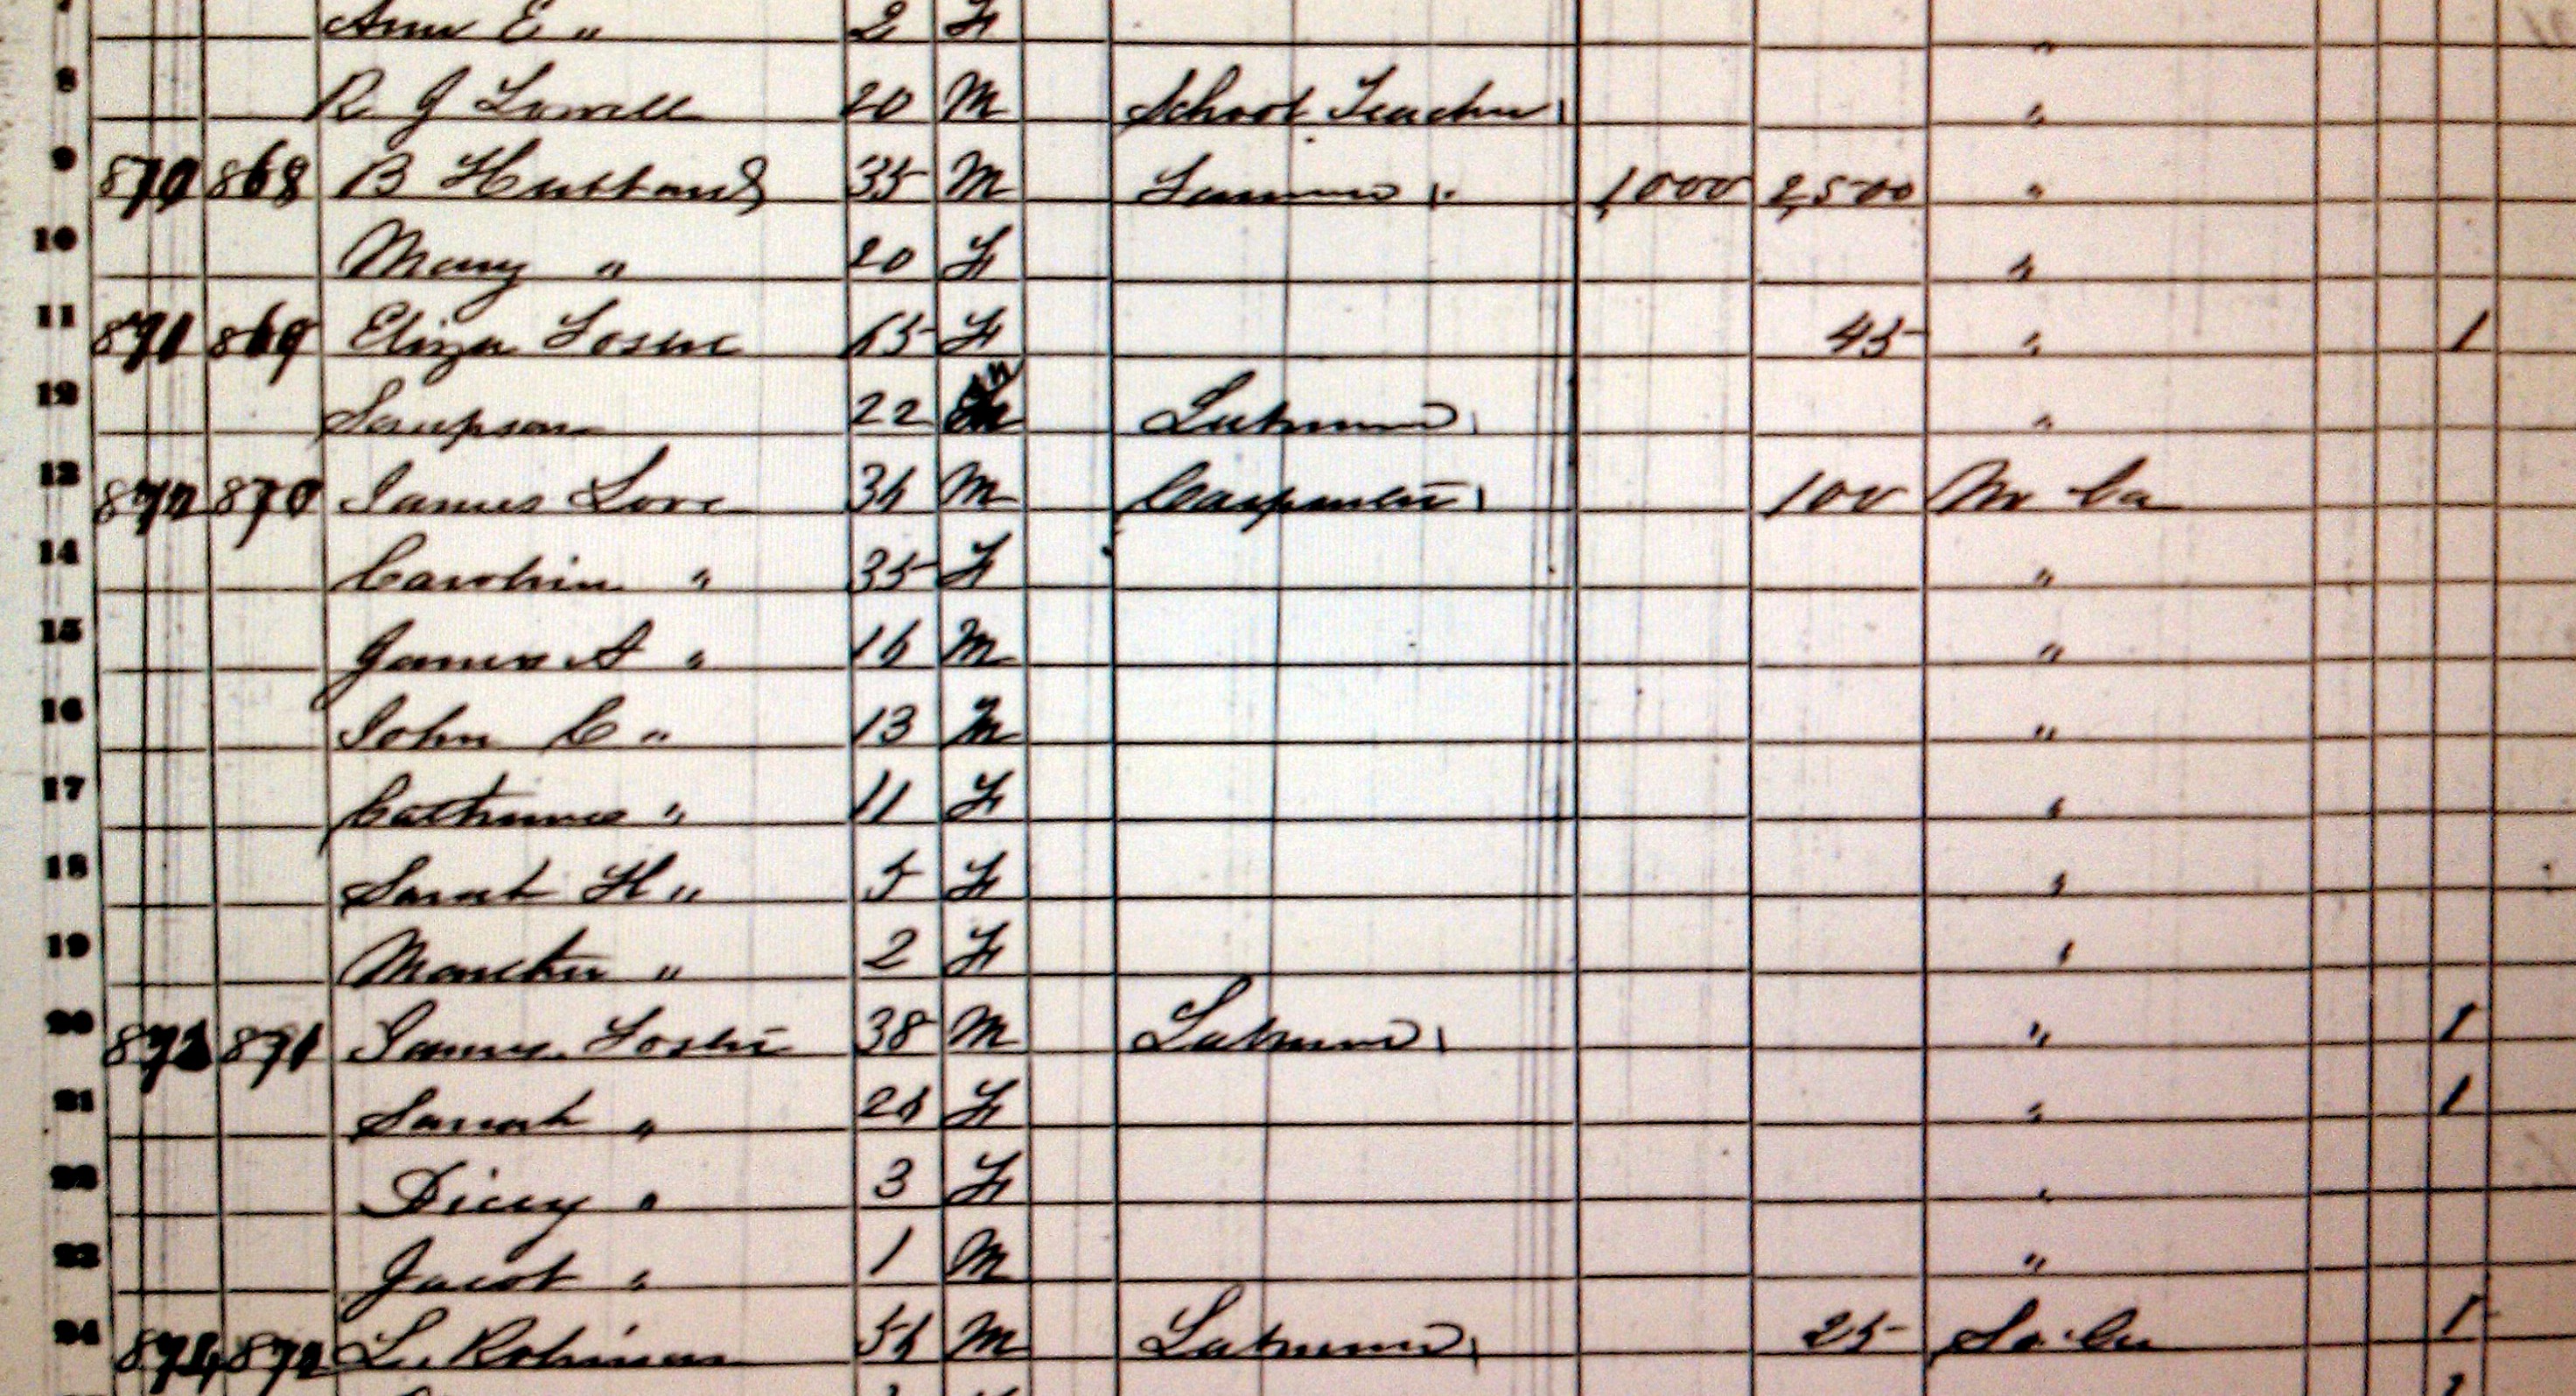 Ann E " 2 F "
8 R G Lowell 20 M School Teacher "
9 870 868 B Hubbard 35 M Farmer 1,000 2,500 "
10 Mary " 20 F "
11 871 869 Eliza Foster 65 F 45 " 1
12 Sampson 22 M Laborer "
13 872 870 James Love 36 M Carpenter 100 N Ca
14 Carolin " 35 F "
15 James A " 16 M "
16 John C " 13 M "
17 Cathrine " 11 F "
18 Sarah H " 5 F "
19 2 F "
20 873 871 James Foster 38 M Laborer " 1
21 Sarah " F " 1
22 Dicey " 3 F "
23 Jacob " 1 M "
24 874 872 L. Robinson M Laborer 25 So Ca 1